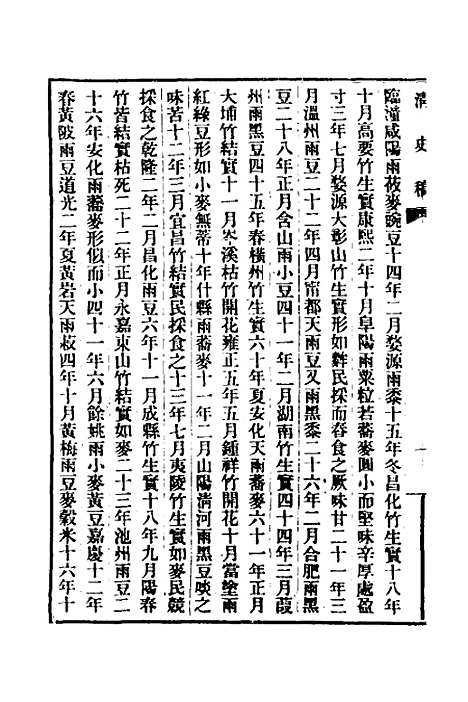 清史稿
臨潼咸陽雨莜麥豌豆十四年二月婺源雨黍十五年冬昌化竹生實十八年
十月高要竹生實康熙二年十月阜陽雨粟粒若蕎麥圓小而堅味辛厚處盈
寸三年七月婺源大彰山竹生實形如麰民採而舂食之厥味甘二十一年三
月溫州雨豆二十二年四月甯都天雨豆又雨黑黍二十六年二月合肥雨黑
豆二十八年正月含山雨小豆四十一年二月湖南竹生實四十四年三月葭
州雨黑豆四十五年春橫州竹生實六十年夏安化天雨蕎麥六十一年正月
大埔竹結實十一月岑溪枯竹開花雍正五年五月鍾祥竹開花十月當塗雨
紅綠豆形如小麥無蒂十年什縣雨蕎麥十一年二月山陽淸河雨黑豆啖之
味苦十二年三月宜昌竹結實民採食之十三年七月夷陵竹生實如麥民競
採食之乾隆二年二月昌化雨豆六年十一月成縣竹生實十八年九月陽春
竹皆結實枯死二十二年正月永嘉東山竹結實如麥二十三年池州雨豆二
十六年安化雨蕎麥形似而小四十一年六月餘姚雨小麥黃豆嘉慶十二年
春黃陂雨豆道光二年夏黃岩天雨菽四年十月黃梅雨豆麥穀米十六年十